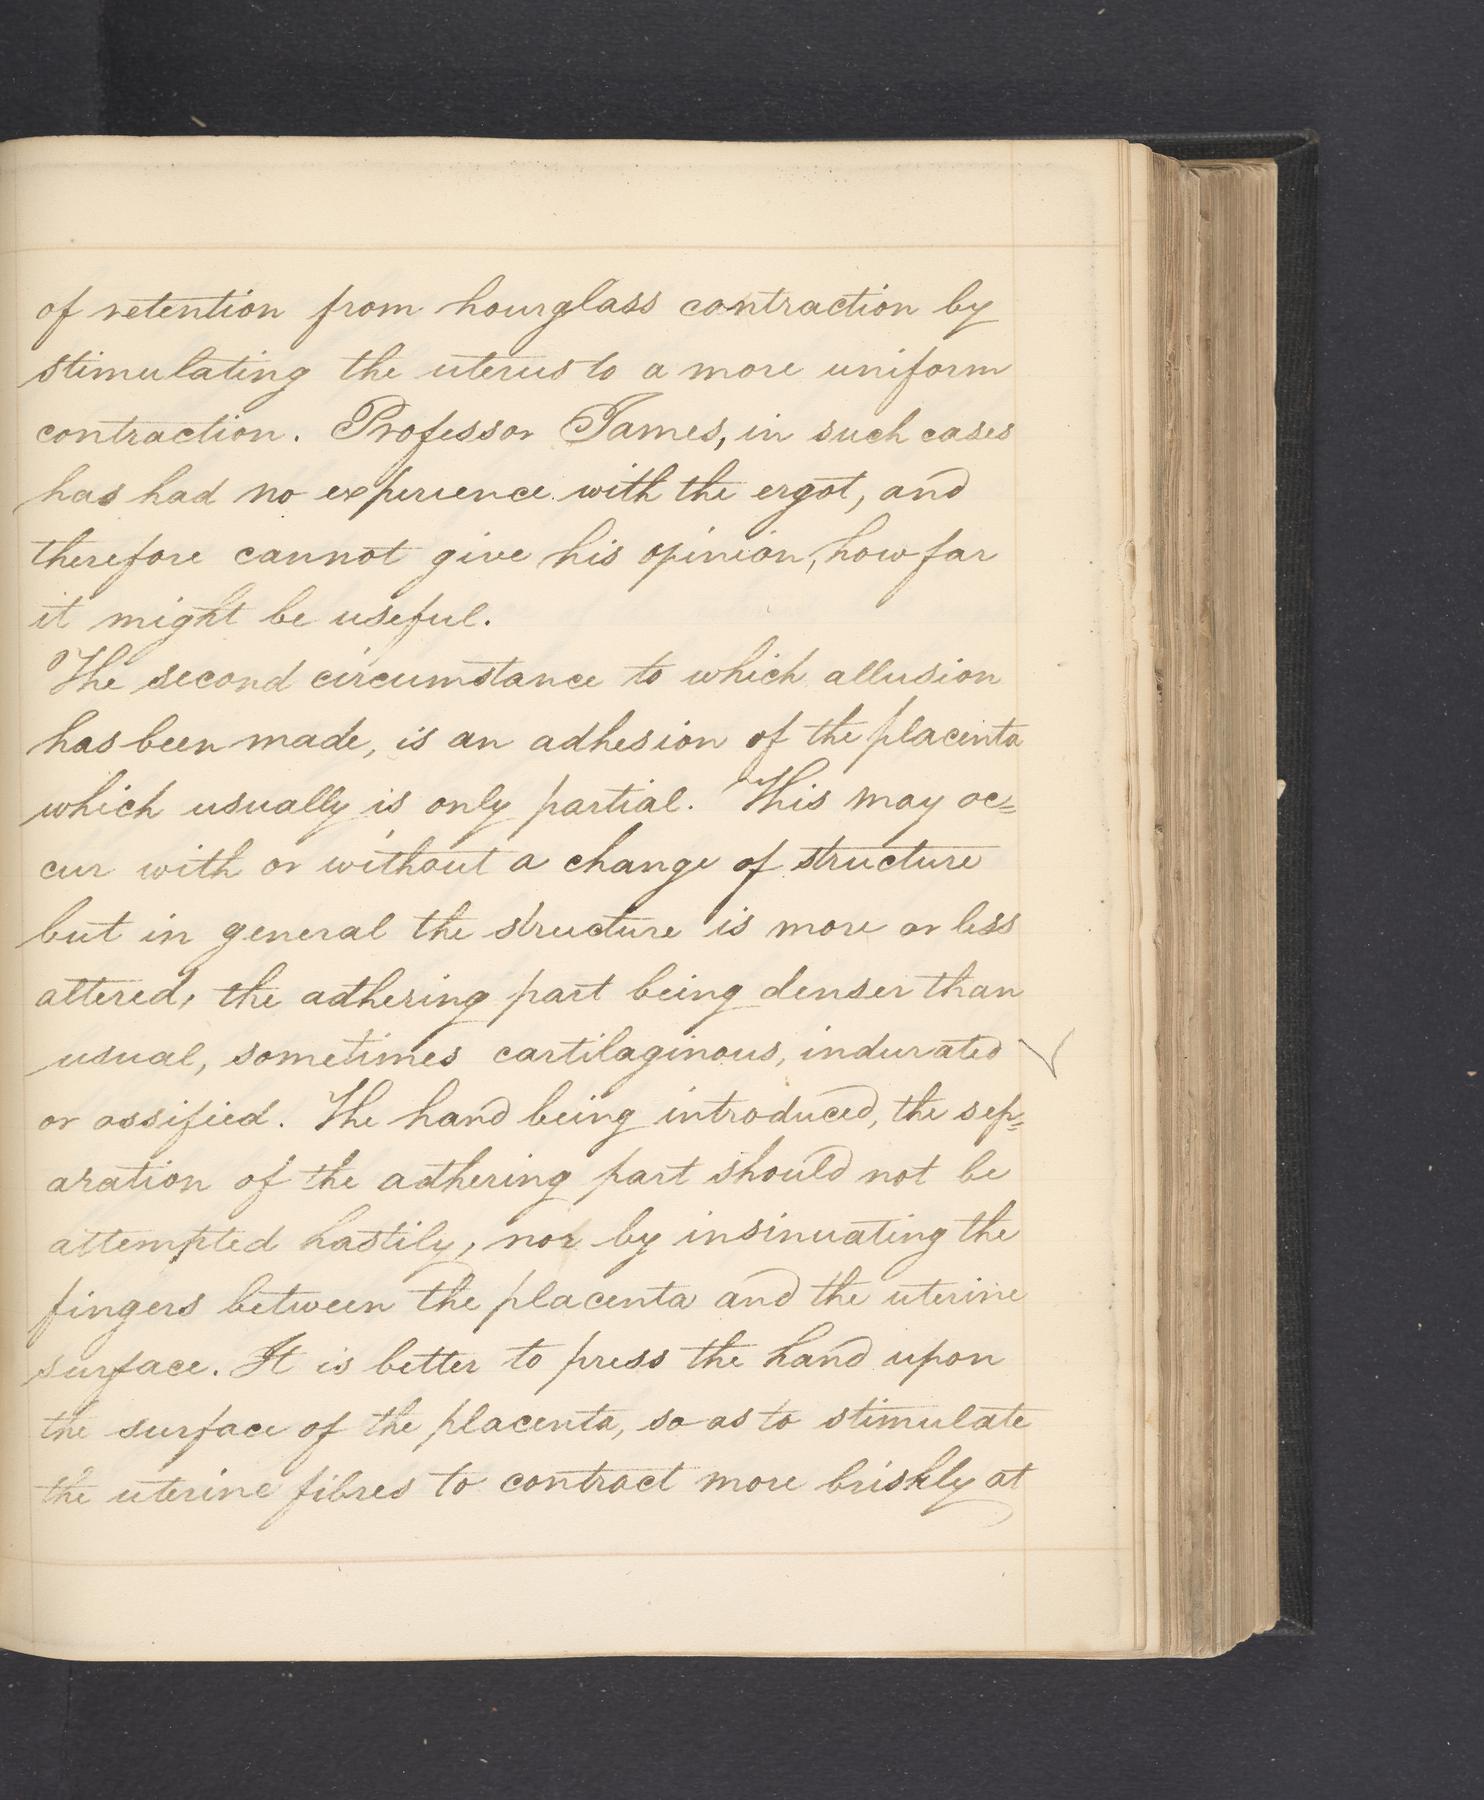 of retention from hourglass contraction by
stimulating the uterus to a more uniform
contraction. Professor James, in such cases
has had no experience with the ergot, and
therefore cannot give his opinion, how far
it might be useful.
The second circumstance to which allusion
has been made, is an adhesion of the placenta
which usually is only partial. This may oc=
cur with or without a change of structure
but in general the structure is more or less
altered, the adhering part being denser than
usual, sometimes cartilaginous, indurated
or ossified. The hand being introduced, the sep=
aration of the adhering part should not be
attempted hastily, nor by insinuating the
fingers between the placenta and the uterine
surface. It is better to press the hand upon
the surface of the placenta, so as to stimulate
the uterine fibres to contract more briskly at